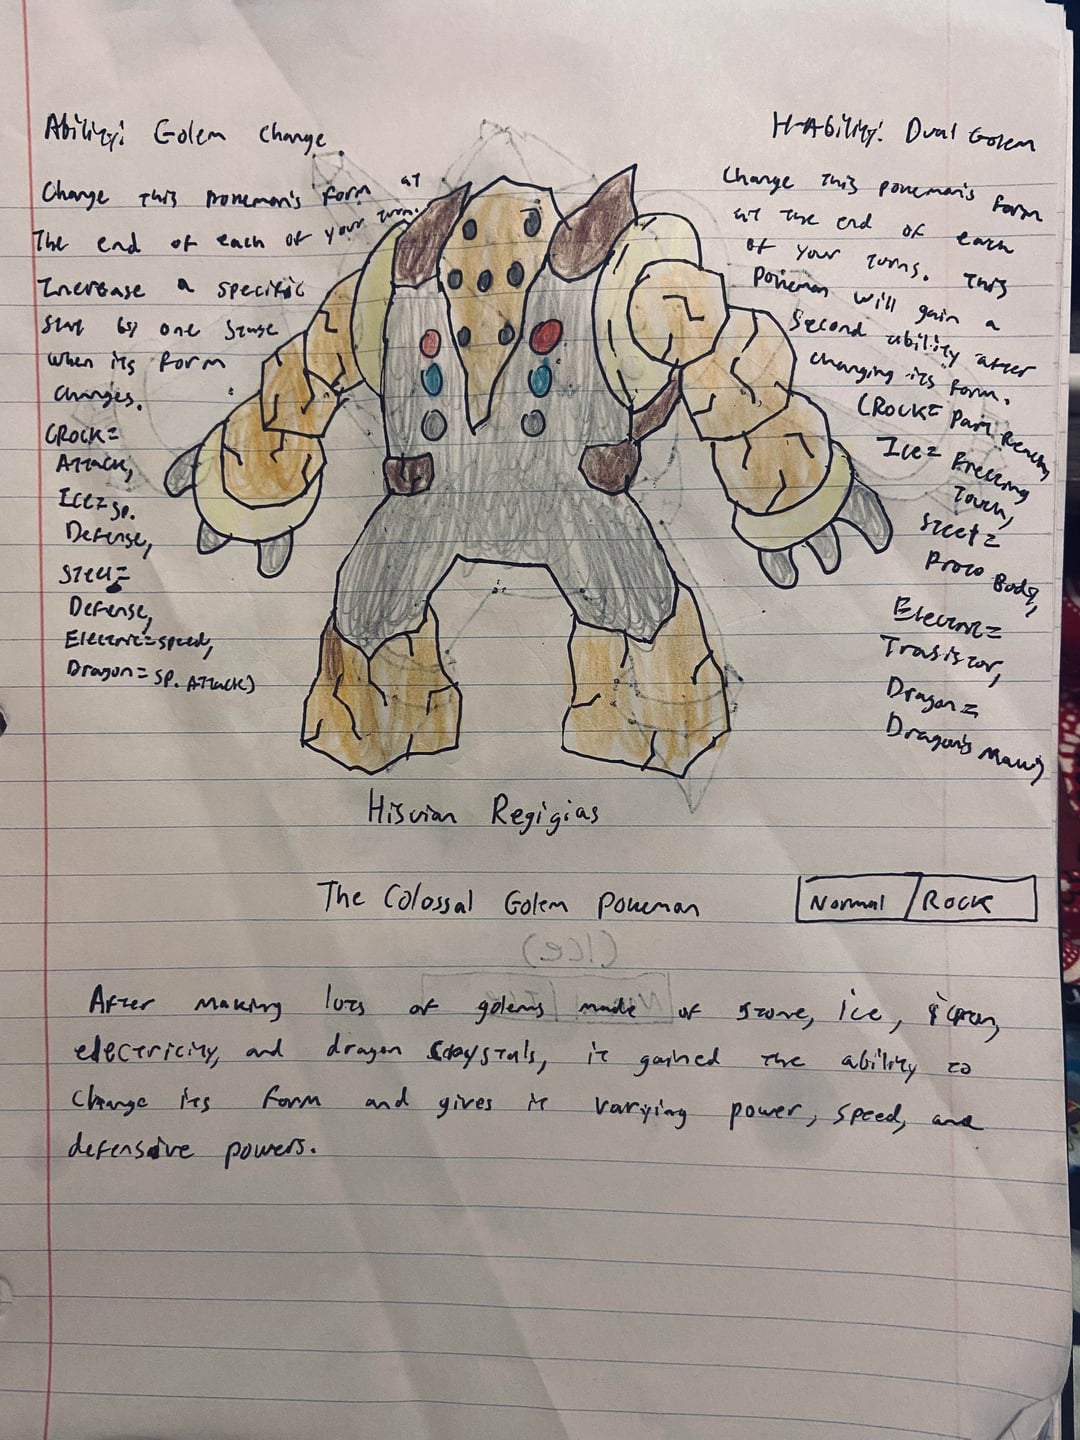 Ability: Golem Change
Change this pokemon's form at
the end of each of your turns.
Increase a specific
stat by one stage
when its form
changes.
(Rock=
Attack,
Ice= Sp.
Defense,
Steel=
Defense,
Electric=speed,
Dragon= sp. Attack)
H-Ability: Dual Golem
Change this pokemon's form
at the end of each
of your turns. This
Pokemon will gain a
second ability after
changing its form.
(Rock=
Ice= Freezing
Touch,
Steel=
Proto Body,
Electric=
Trasistor,
Dragon=
Dragon's Maw)
Hisuian Regigias
The Colossal Golem Pokemon
Normal / Rock
(Ice)
After making lots of golems made of stone, ice, iron,
electricity, and dragon crystals, it gained the ability to
change its form and gives it varying power, speed, and
defensive powers.